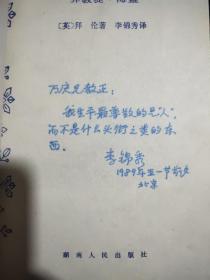 [英]拜 伦著 李锦秀译
万庆兄教正：
我生平最尊敬的是“人”，
而不是什么头衔之类的东
西。
李锦秀
1989年五一节前夕
北京
湖南人民出版社